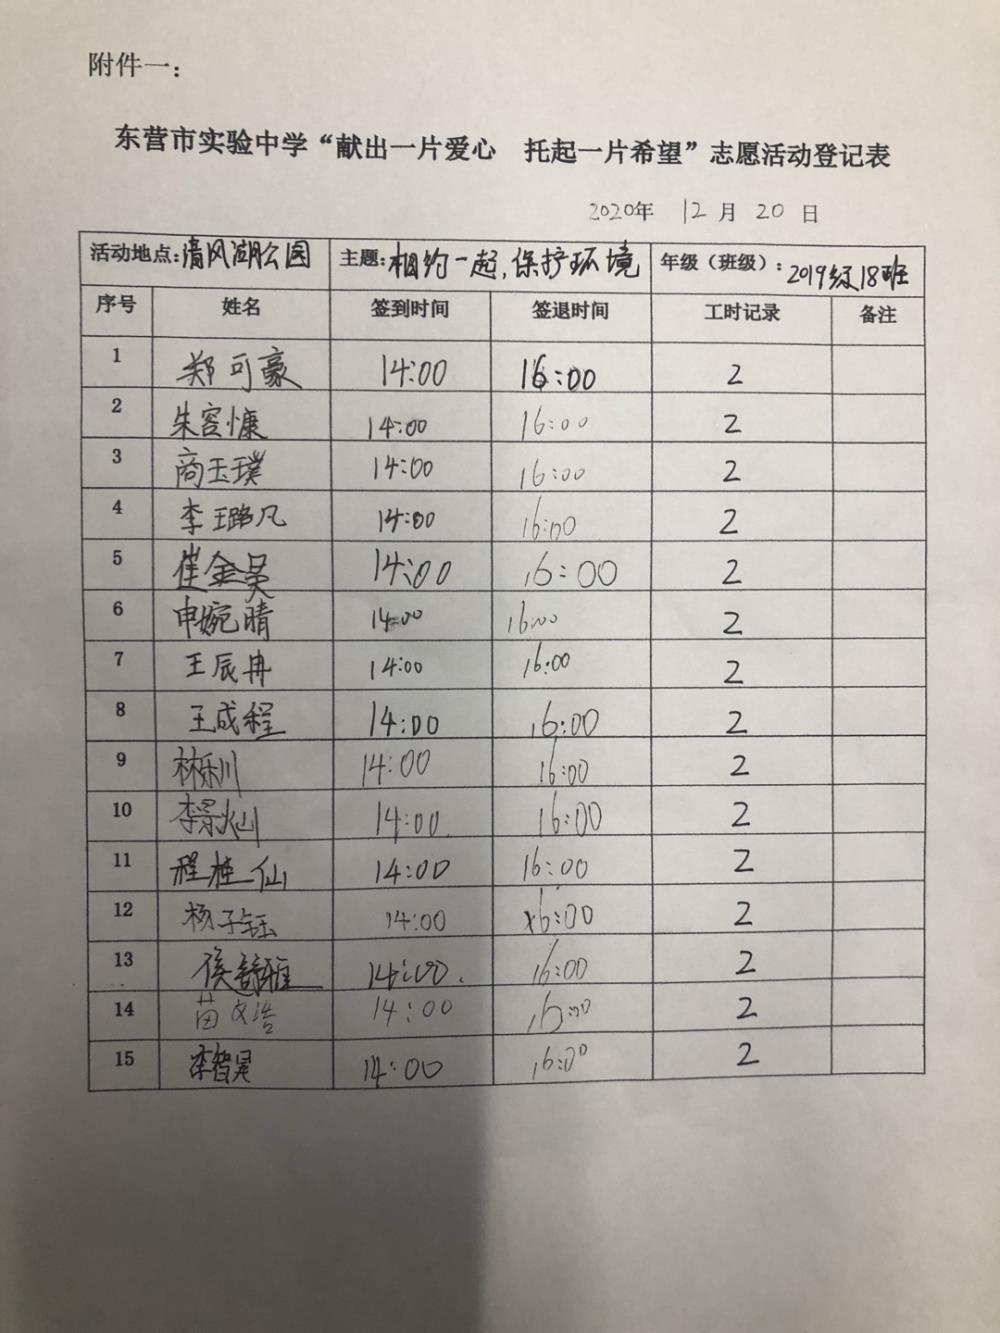 附件一：
东营市实验中学“献出一片爱心 托起一片希望”志愿活动登记表
2020年 12 月 20 日
活动地点：清风湖公园 主题：相约一起，保护环境 年级（班级）：2019级18班
序号 姓名 签到时间 签退时间 工时记录 备注
1 郑可豪 14:00 16:00 2
2 朱容慷 14:00 16:00 2
3 商玉璞 14:00 16:00 2
4 李璐凡 14:00 16:00 2
5 崔金昊 14:00 16:00 2
6 申婉晴 14:00 16:00 2
7 王辰冉 14:00 16:00 2
8 王成程 14:00 16:00 2
9 林乐川 14:00 16:00 2
10 李景灿 14:00 16:00 2
11 程桂仙 14:00 16:00 2
12 杨子钰 14:00 16:00 2
13 侯舒雅 14:00 16:00 2
14 苗文浩 14:00 16:00 2
15 李智昊 14:00 16:00 2